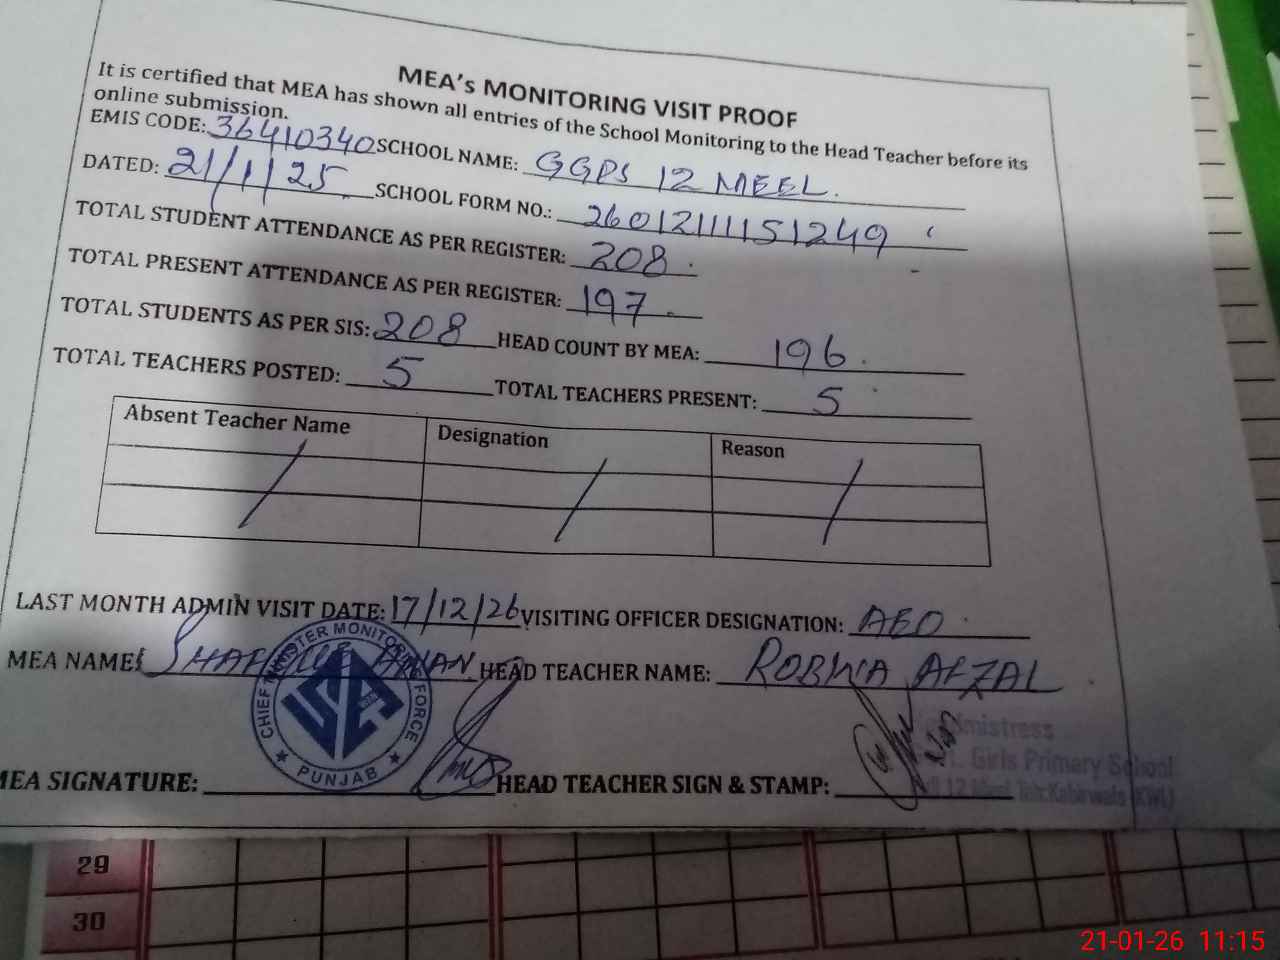 MEA's MONITORING VISIT PROOF
It is certified that MEA has shown all entries of the School Monitoring to the Head Teacher before its
online submission.
EMIS CODE: 36410340 SCHOOL NAME: GGPS 12 MEEL.
DATED: 21/1/25 SCHOOL FORM NO.: 26012111151249
TOTAL STUDENT ATTENDANCE AS PER REGISTER: 208
TOTAL PRESENT ATTENDANCE AS PER REGISTER: 197
TOTAL STUDENTS AS PER SIS: 208 HEAD COUNT BY MEA: 196
TOTAL TEACHERS POSTED: 5 TOTAL TEACHERS PRESENT: 5
Absent Teacher Name Designation Reason
LAST MONTH ADMIN VISIT DATE: 17/12/26 VISITING OFFICER DESIGNATION: AEO
MEA NAME: AWAN HEAD TEACHER NAME: AFZAL
CHIEF MINISTER MONITORING FORCE
PUNJAB
Girls Primary School
12
MEA SIGNATURE: HEAD TEACHER SIGN & STAMP:
29
30
21-01-26 11:15